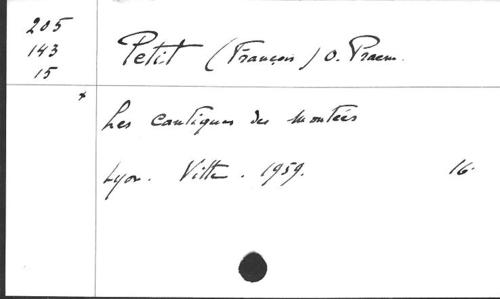 205
143
15
Petit (François) O. Praem.
* Les cantiques des montées
Lyon. Vitte. 1959. 16.